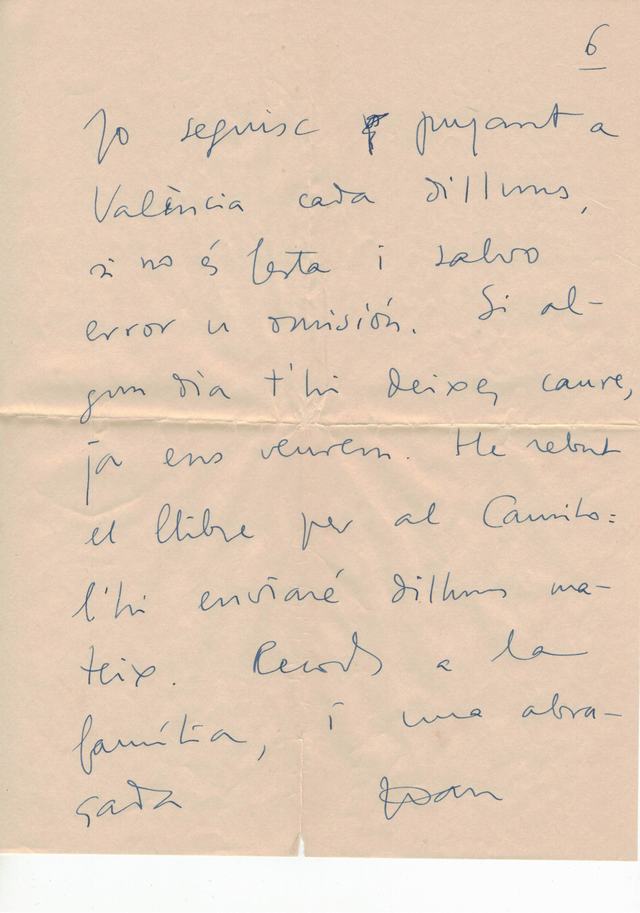 6
Jo seguisc pujant a
València cada dilluns,
si no és festa i salvo
error u omisión. Si al-
gun dia t'hi deixes caure,
ja ens veurem. He rebut
el llibre per al Camilo:
l'hi enviaré dilluns ma-
teix. Records a la
família, i una abra-
çada Joan